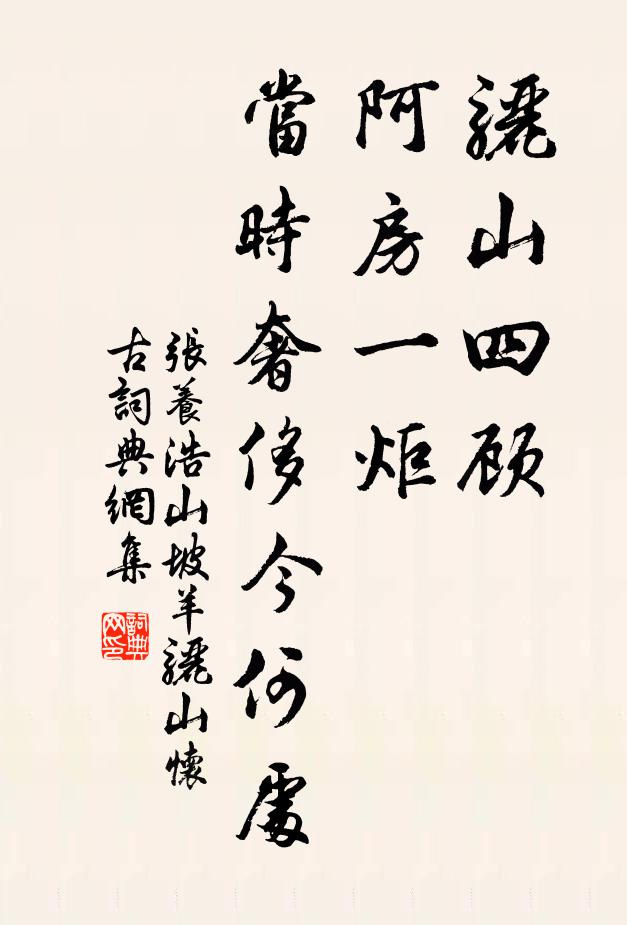 驪山四顾
阿房一炬
當時奢侈今何處
張養浩山坡羊驪山懷
古詞典網集
詞典网印